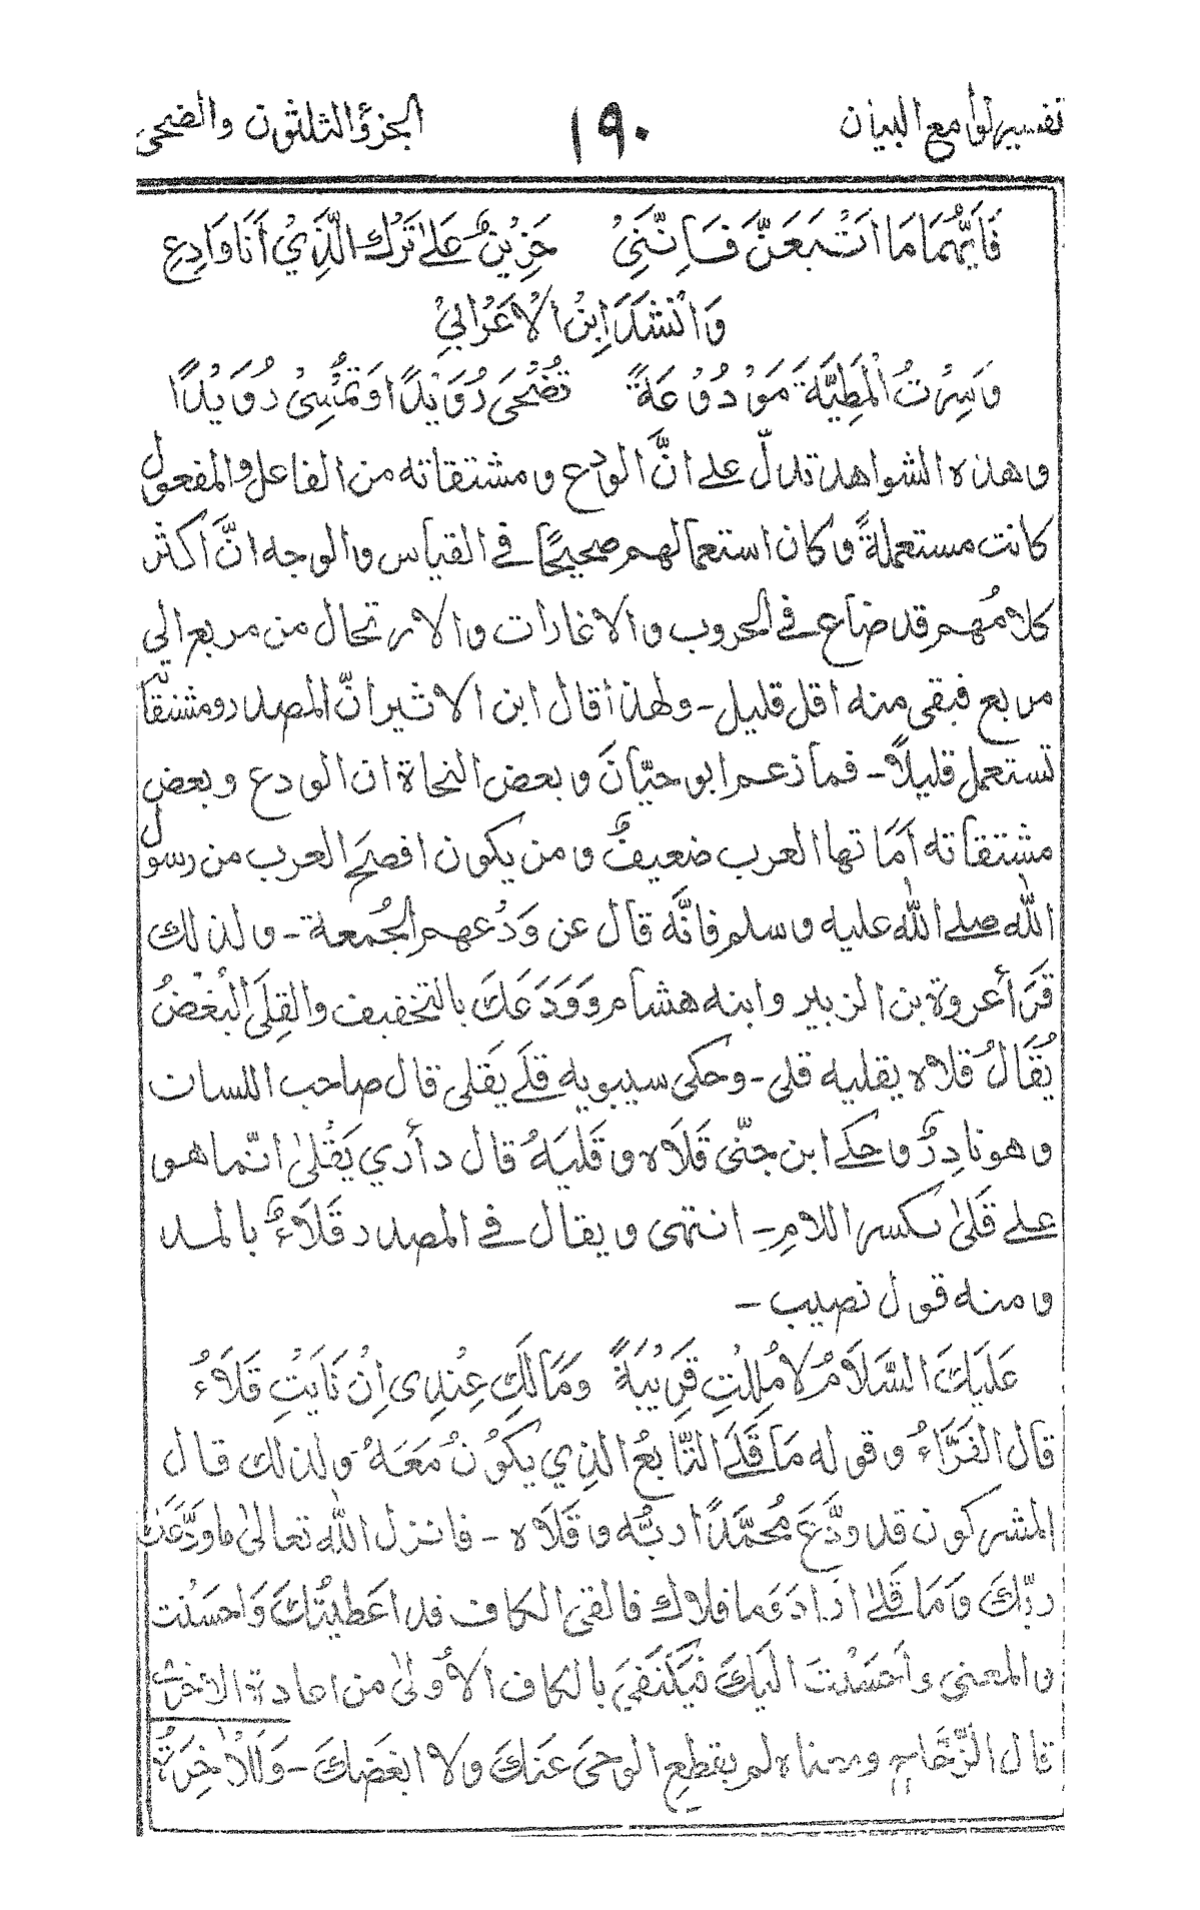 تفسير لوامع البيان ١٩٠ الجزؤ الثلثون والضحى
فَاَيُّهُمَا مَا اَتْبَعَنَّ فَاِنَّنِيْ حَزِيْنٌ عَلىٰ تَرْكِ الَّذِيْ اَنَا وَادِعِ
وَاَنْشَدَ اِبْنُ الْاَعْرَابِيْ
وَسِرْتُ الْمَطِيَّةَ مَوْدُوْعَةً تُضْحَى رُوَيْدًا وَتُمْسِيْ رُوَيْدًا
وهذه الشواهد تدلّ على انَّ الودع ومشتقاته من الفاعل والمفعول
كانت مستعملةً وكان استعمالهم صحيحًا في القياس والوجه انَّ اكثر
كلامُهم قد ضاع في الحروب والاغارات والارتحال من مربع الى
مربع فبقى منه اقل قليل - ولهذا قال ابن الاثير انَّ المصدر ومشتقاّ
تستعمل قليلاً - فما زعم ابو حيّانَ وبعض النحاة ان الودع وبعض
مشتقاته اَمَاتها العرب ضعيفٌ ومن يكون افصَح العرب من رسول
الله صلى الله عليه وسلم فانَّه قال عن وَدْعهم الجُمعة - ولذلك
قَرَأ عروة بن الزبير وابنه هشام وَوَدَعَكَ بالتخفيف والقِلَى الْبُغْضُ
يُقَالُ قلاه يقليه قلى - وحكى سيبويه قلَى يَقلى قال صاحب اللسان
وهو نادِرٌ وحكى ابن جنّى قَلَاه وقَليَهُ قال د أرى يَقْلىٰ انّما هو
على قَلىٰ بكسر اللامِ - انتهى ويقال في المصدر قَلَاءٌ بالمد
ومنه قول نصيب -
عَلَيْكَ السَّلَامُ لَا مُلِلْتِ قَرِيْبَةً وَمَالَكِ عِنْدِى اِنْ نَأَيْتِ قَلَاءُ
قال الفَرَّاءُ وقوله مَا قَلَى التَّابعُ الذِي يَكُوْنُ مَعَهُ ولذلك قال
المشركون قد ودَّعَ مُحَمَّدًا ربُّه وقَلَاه - فانزل الله تعالىٰ ما ودَّعَكَ
ربّكَ وَمَا قَلىٰ ارَادَ وما قلاك فالقى الكاف قد اعَطيتُكَ وَاحسَنْت
والمعنى واَحسَنْتَ اليَكَ فَيَكتَفيَ بالكاف الأُولىٰ من اعادة الاخرى
قال الزَّجَّاج ومعناه لم يقطِعِ الوحىَ عَنكَ ولا ابغَضكَ - وَلَلْاٰخِرَةُ